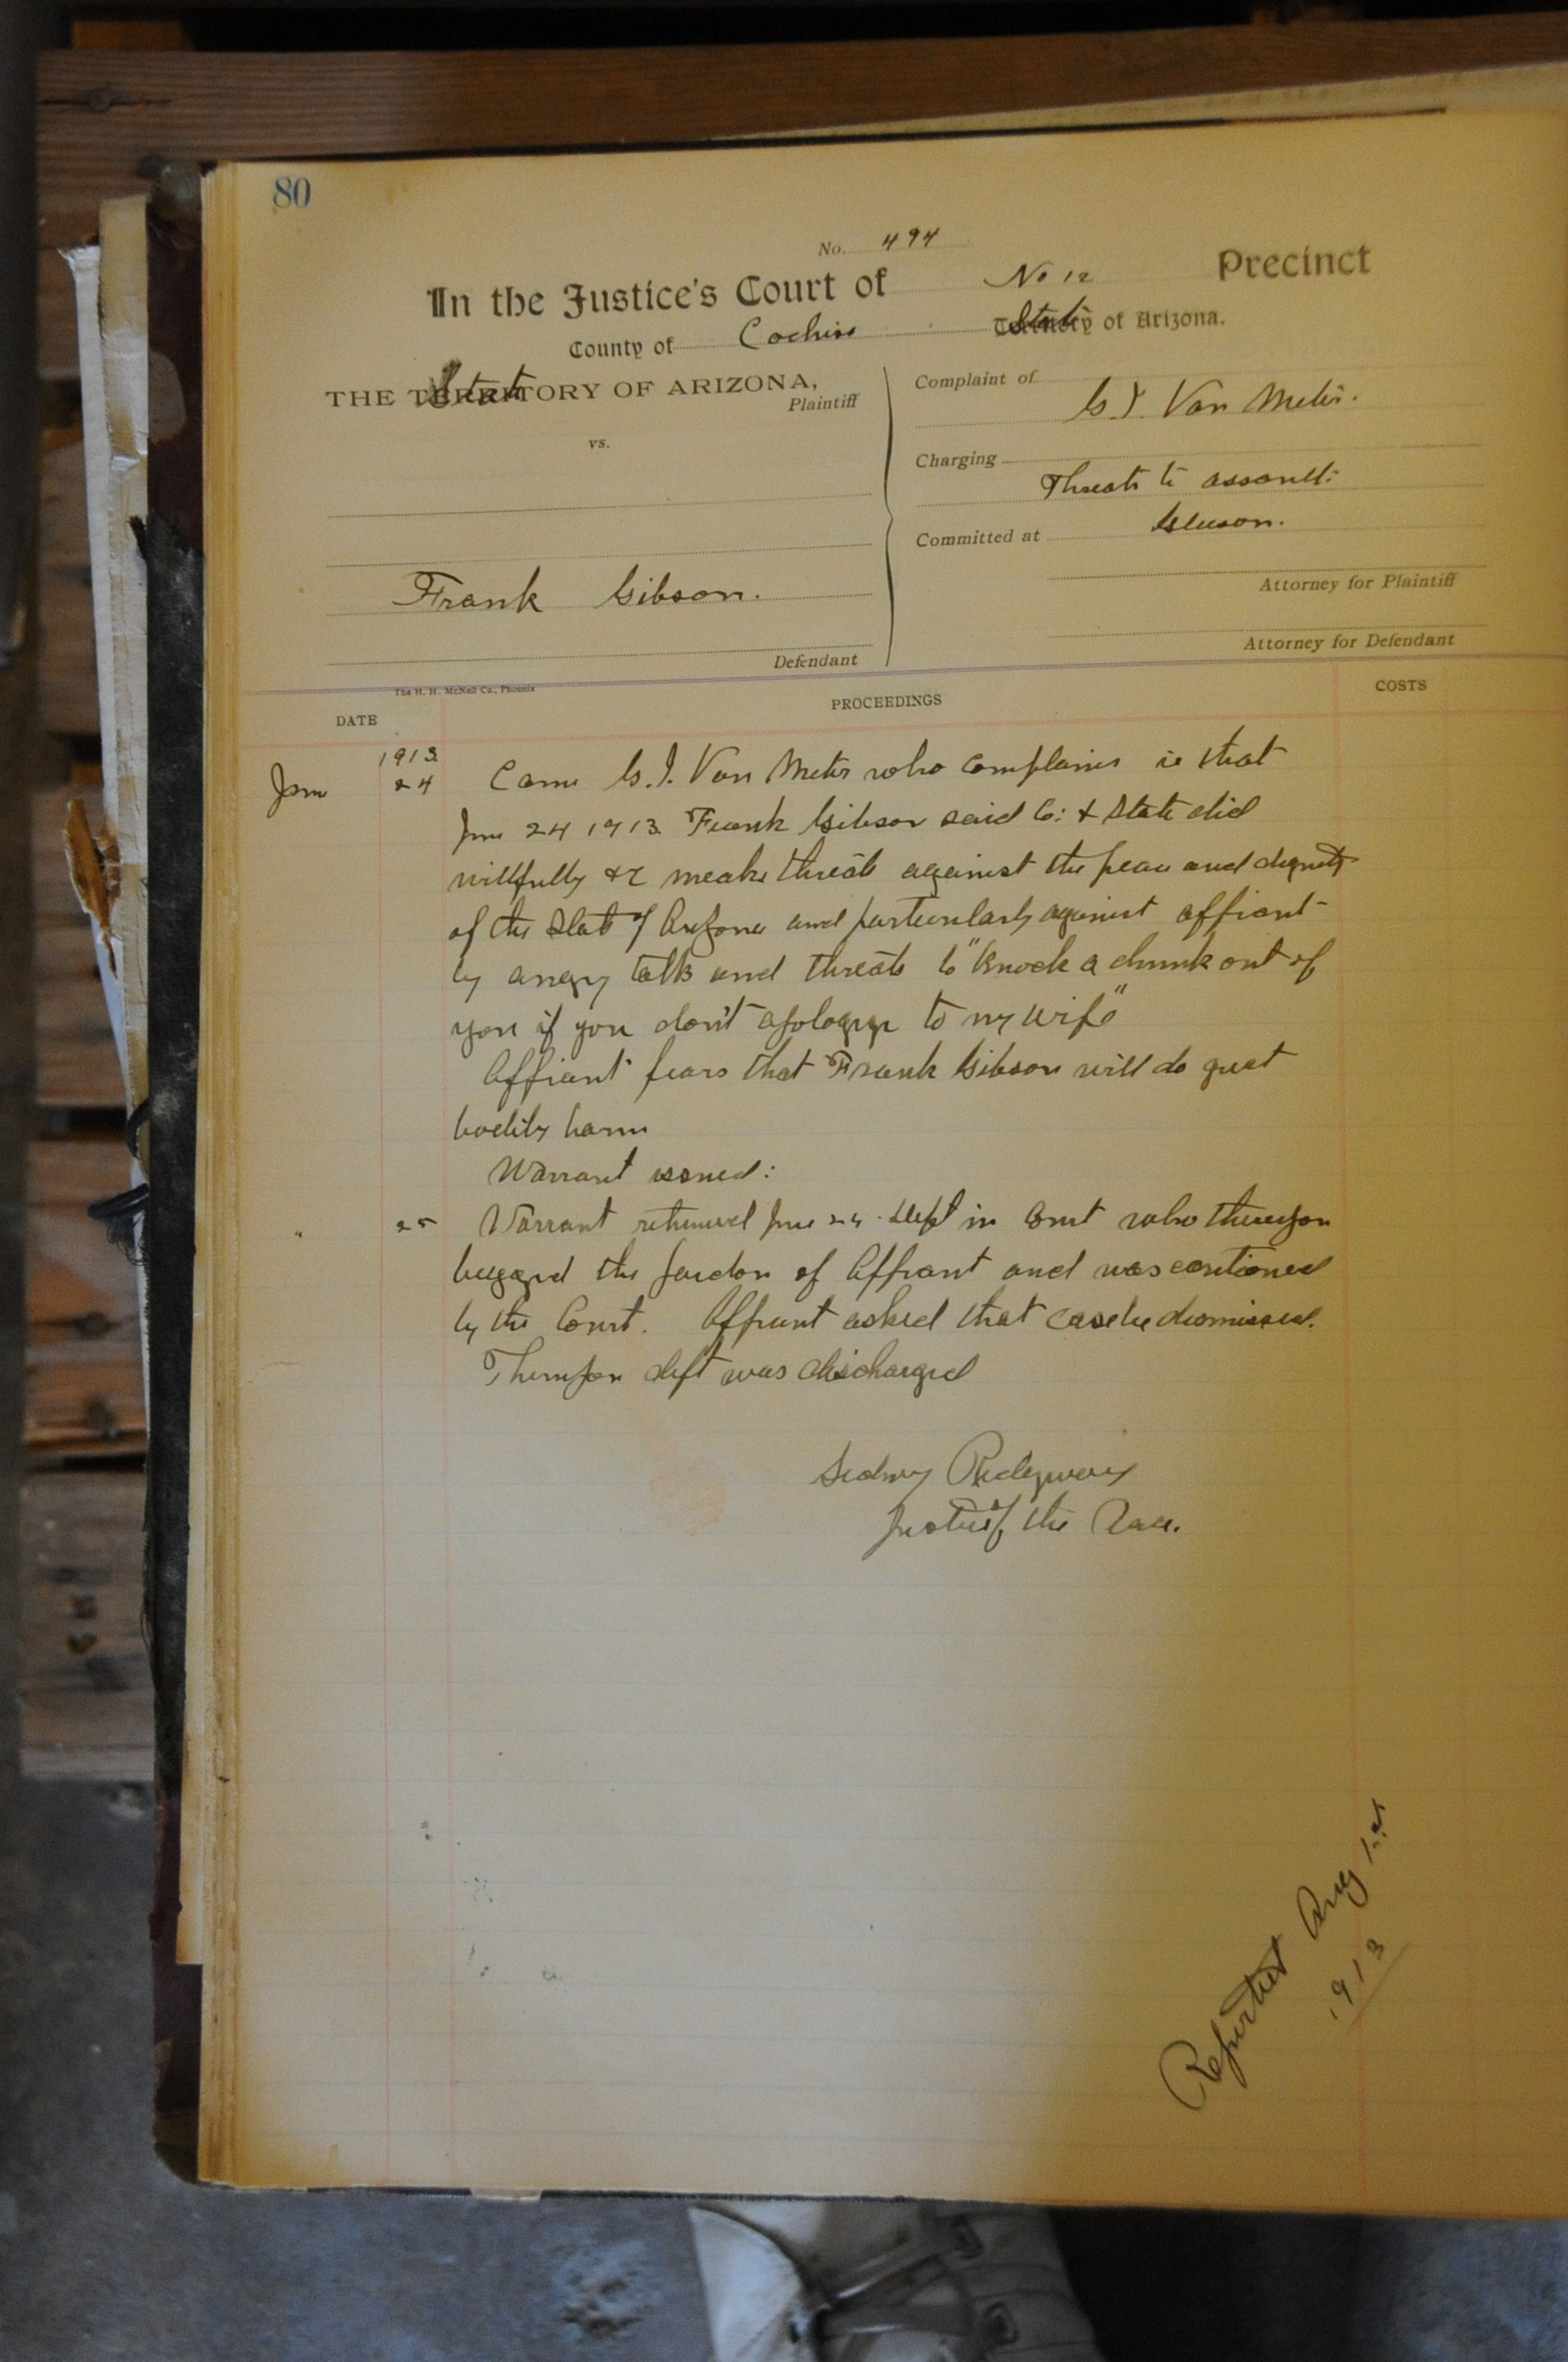 80
No. 494
In the Justice's Court of No 12 Precinct
County of Cochise State of Arizona.
THE State OF ARIZONA,
Plaintiff
vs.
Frank Gibson.
Defendant
Complaint of
G. J. Van Meter.
Charging
Threats to assault.
Committed at Gleeson.
Attorney for Plaintiff
Attorney for Defendant
The H. H. McNeil Co., Phoenix
DATE PROCEEDINGS COSTS
1913
24 Came G. J. Van Meter who complains is that
24 1913 Frank Gibson said Co: & State did
willfully &c make threats against the peace and dignity
of the State of Arizona and particularly against affiant
by angry talk and threats to "Knock a chunk out of
you if you don't apologize to my wife"
Affiant fears that Frank Gibson will do great
bodily harm
Warrant issued:
25 Warrant returned 24. Deft in Court who thereupon
begged the pardon of Affiant and was cautioned
by the Court. Affiant asked that case be dismissed.
Thereupon deft was discharged
Sidney Ridgway
Justice of the Peace.
Reported Aug 1st
1913